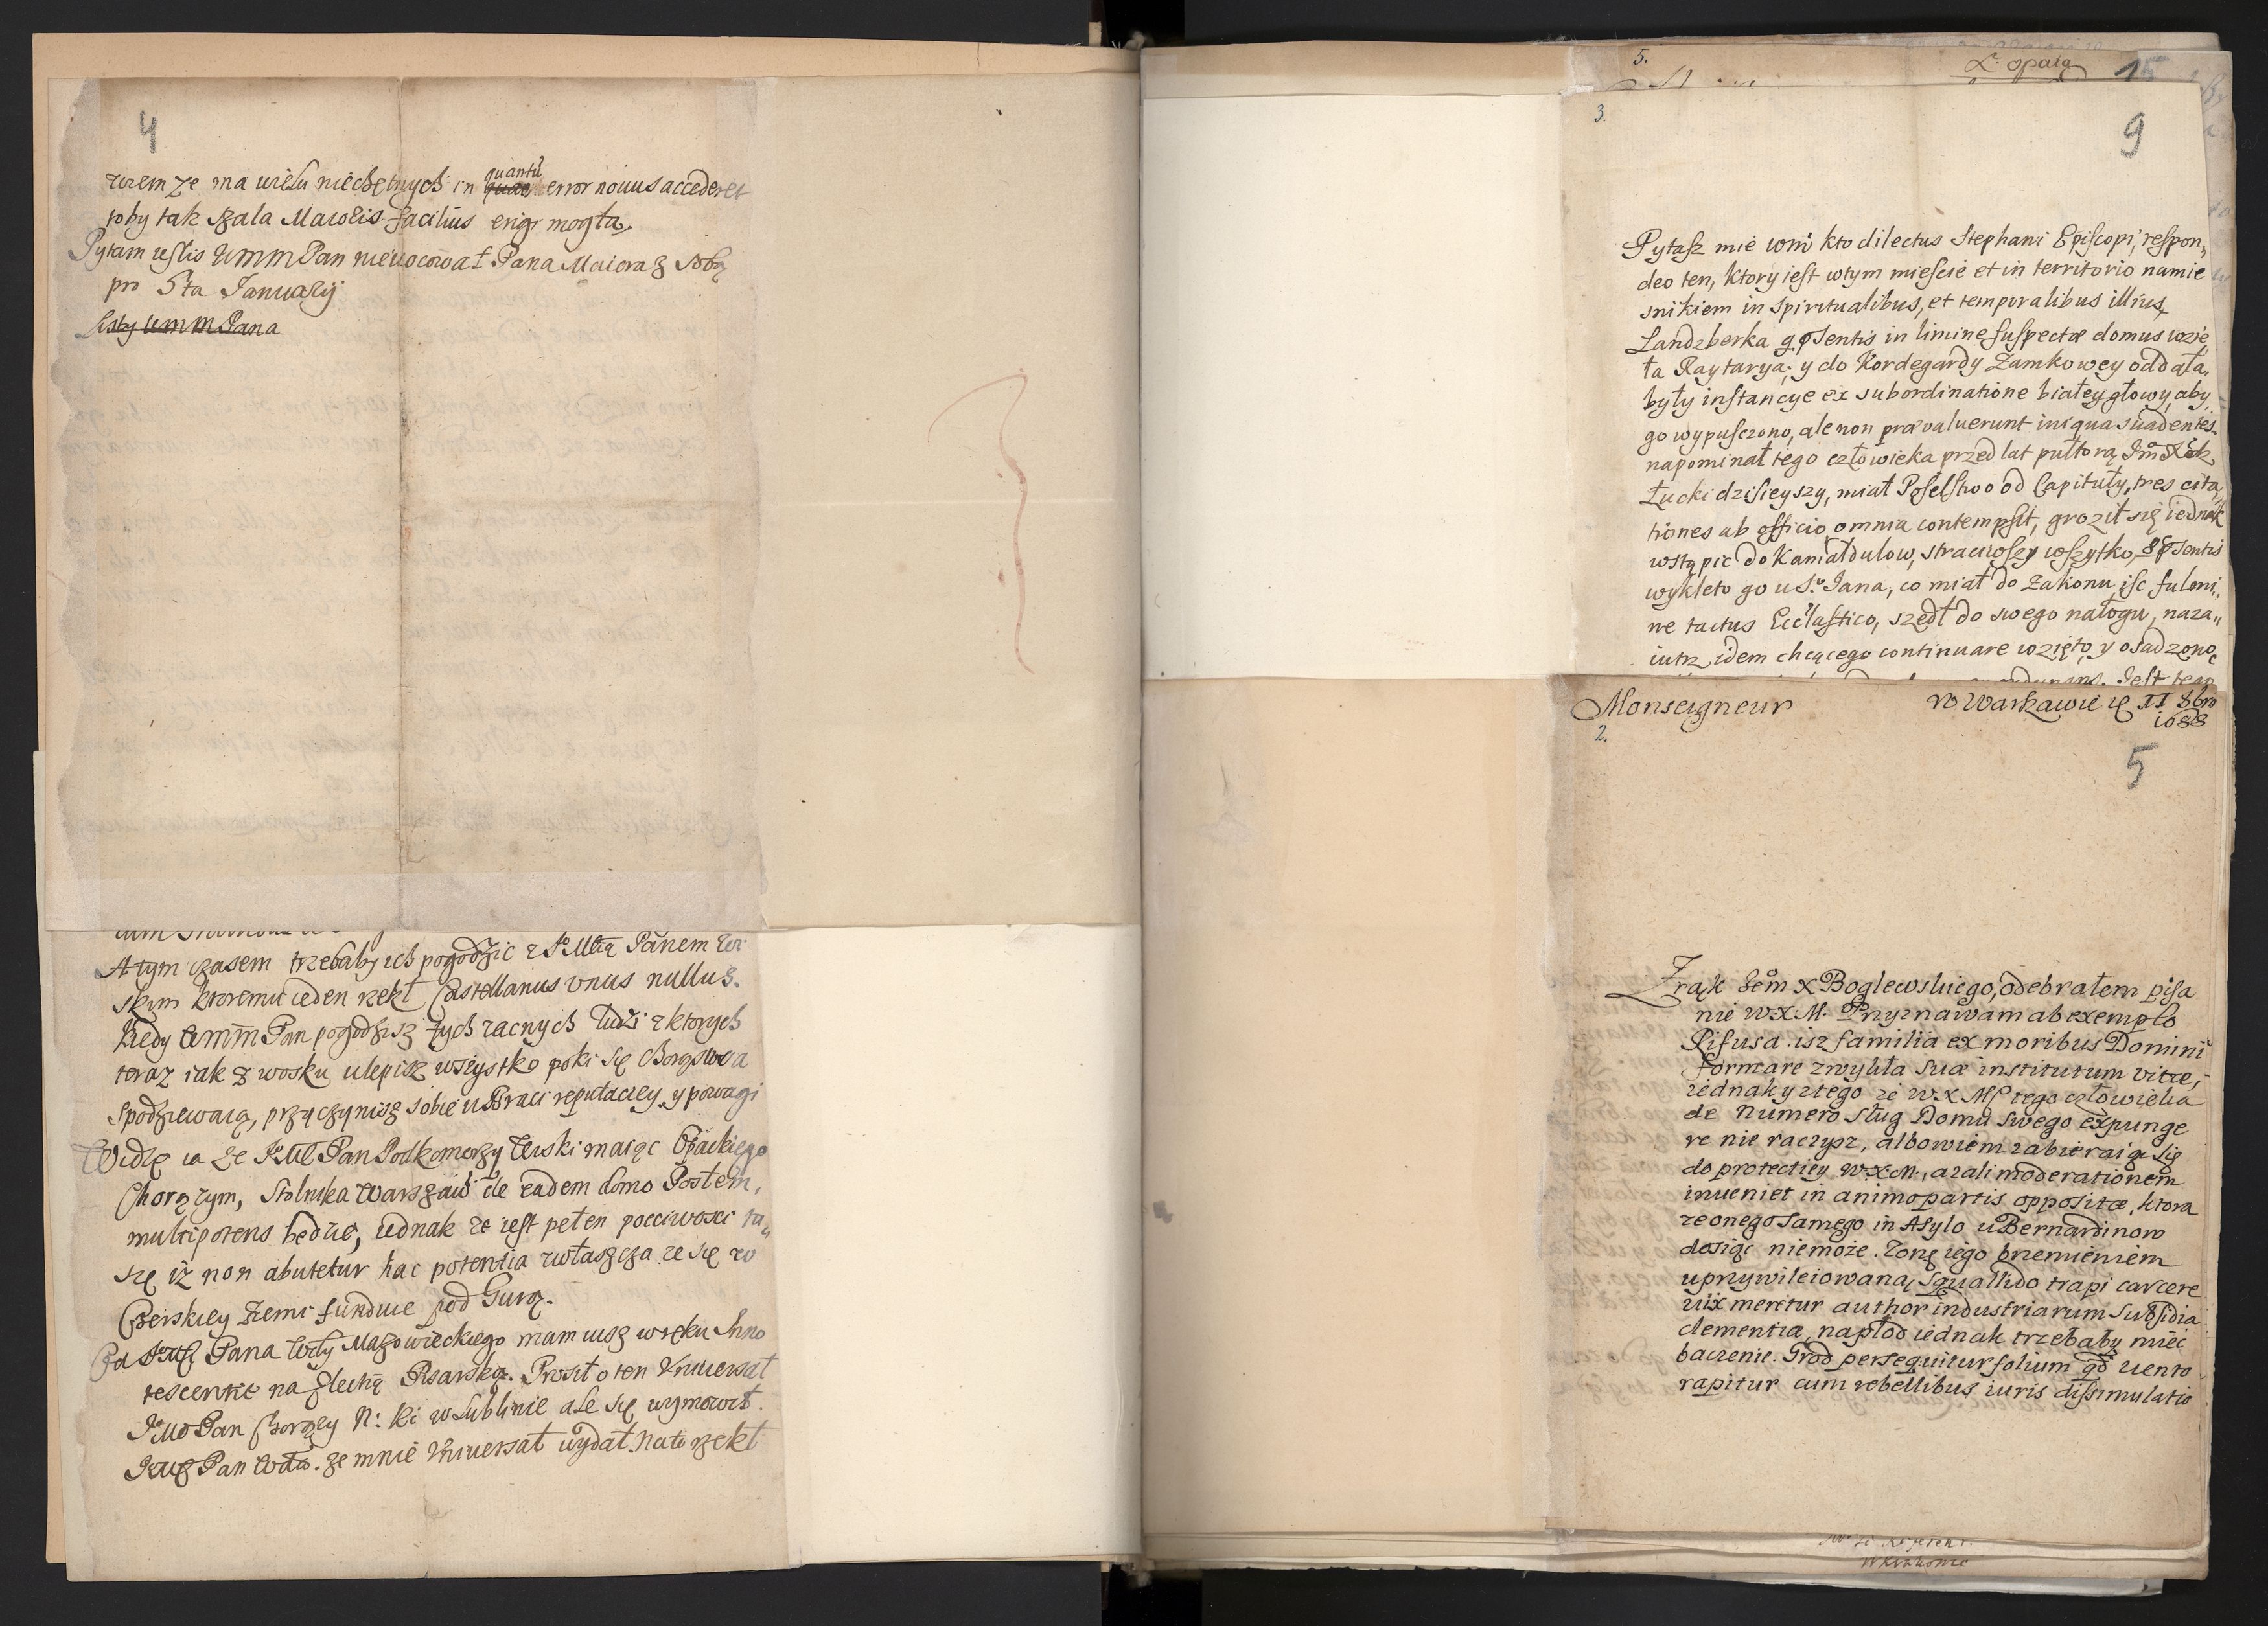 4
wiem ze ma wielu niechętnych in quantũ error nouus accederet
toby tak szala Mawlis facilius erigi mogła.
Pytam ieslis WMM Pan niewocował Pana Maiora z sobą
pro 5ta January
listy WMM Pana
A tym czasem trzebaby ich pogodzic z JeMcią Panem Wi
skim ktoremu ieden rzekł Castellanus vnus nullus.
Kiedy WMM Pan pogodzisz tych zacnych ludzi z ktorych
teraz iak z wosku ulepisz wszystko poki się
spodziewaią, przyczynisz sobie u Braci reputaciey y powagi
Widzę ia ze JeMC Pan Podkomorzy Cerski maiąc
Chorązym, Stolnika Warszaw: de eadem domo Posłem,
multipotens będzie, iednak ze iest pełen poczciwosci tu„
szę iz non abutetur hac potentia zwłaszcza ze się w
Czerskiey Ziemi funduie pod Gurą.
Od Pana Wdy Mazowieckiego mam iusz w ręku Inno
tescentie na Elechią Pisarską. Prosił o ten Vniuersał
JeMo Pan Chorązy N: ki w Lublinie ale się wymowił.
Pan Wda. ze mnie Vniuersał wydał. Na to rzekł
5.
Ł. opata
15
3.
9
Pytasz mie wm kto dilectus Stephani Episcopi, respon„
deo ten, ktory iest wtym miescie et in territorio namie
snikiem in spiritualibus, et temporalibus illius,
Landzberka 9 psentis in limine suspectæ domus wzię
ta Raytarya; y do Kordegardy Zamkowey oddała,
były instancye ex subordinatione białey głowy, aby
go wypusczono, ale non prævaluerunt iniqua suadentes.
napominał tego człowieka przed lat pułtorą
Łucki dzisieyszy, miał Poselstwo od Capituły, tres cita
tiones ab officio, omnia contempsit, groził się iednak
wstąpic do Kamałdulow, strawiwszy wszytko, 8 psentis
wyklęto go u S. Jana, co miał do Zakonu isc fulmi„
ne tactus Eccłastico, szedł do swego nałogu, naza„
iutrz idem chcącego continuare wzięto, y osadzono,
Monseigneur w Warszawie ię 11 8bro
1688
2.
5
Z rąk Jem X Boglewskiego, odebrałem pisa
nie W.X.M. Przyznawam ab exemplo
Pisusa isz familia ex moribus Domini
formare zwykła suæ institutum vitæ,
iednak y ztego ze W.X Mc tego człowieka
de numero sług Domu swego expunge
re nie raczysz, albowiem zabieraią się
do protectiey W.X.M., azali moderationem
inueniet in animo partis oppositæ, ktora
ze onego samego in Asylo u Bernardinow
dosiąc niemoże. Zonę iego brzemieniem
uprzywileiowaną, squallido trapi carcere
vix meretur author industriarum subsidia
clementiæ, napłod iednak trzebaby mieć
baczenie. Grod persequitur folium qd vento
rapitur cum rebellibus iuris dissimulatio